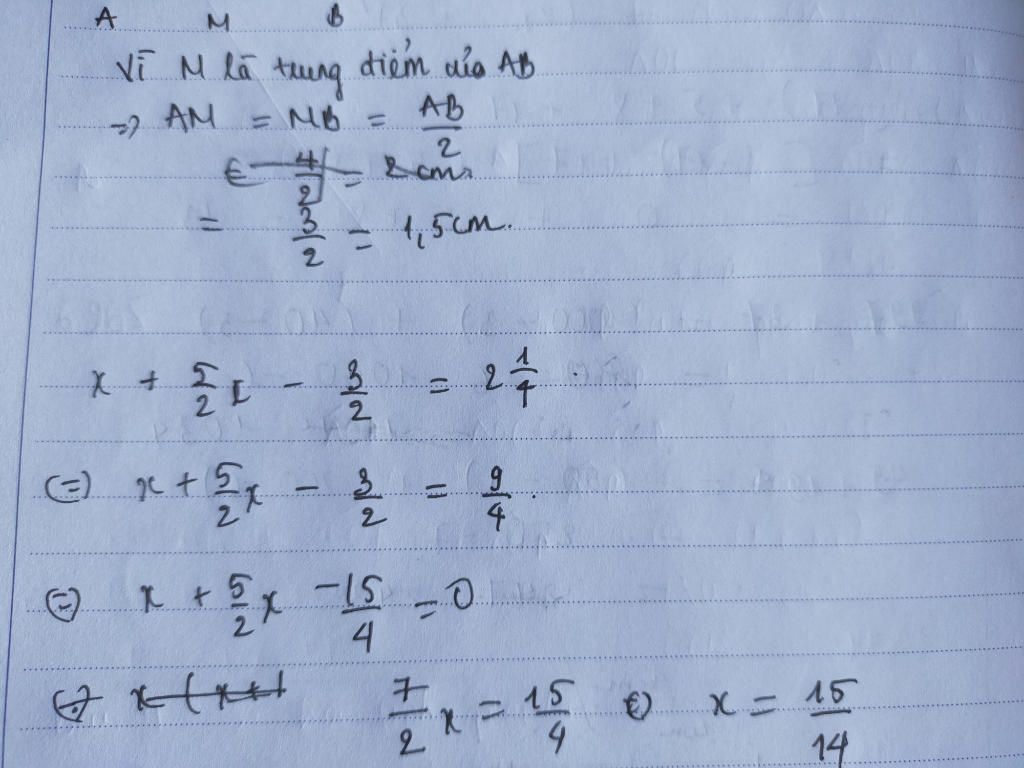 A M B
Vì M là trung điểm của AB
=> AM = MB = AB/2
= 4/2 = 2 cm
= 3/2 = 1,5cm.
x + 5/2 x - 3/2 = 2 1/4
(=) x + 5/2 x - 3/2 = 9/4.
(=) x + 5/2 x - 15/4 = 0
(=) x (x+1 7/2 x = 15/4 (=) x = 15/14